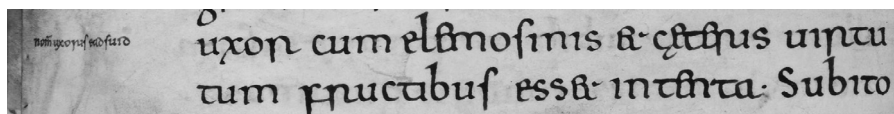 nom̄ uxoris
uxor cum elemosinis & cęteris uirtu
tum fructibus ess& intenta· Subito